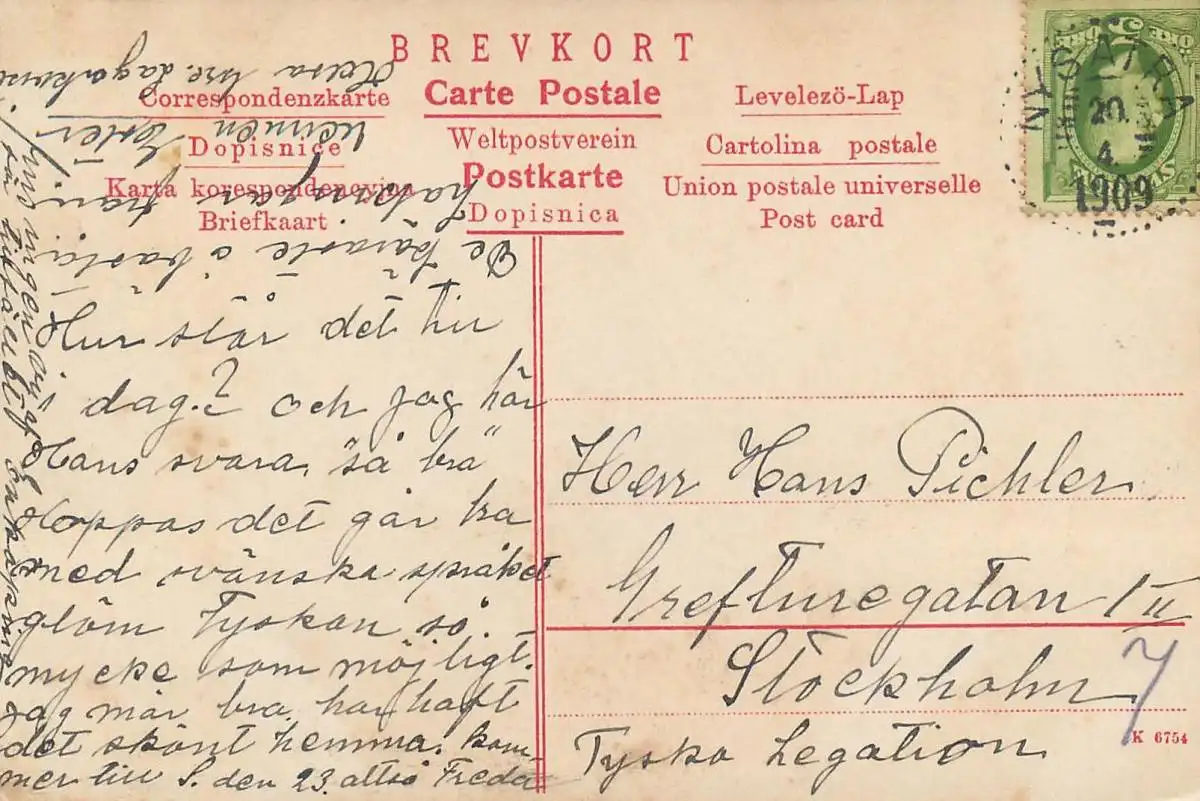 BREVKORT
Correspondenzkarte
Carte Postale
Levelezö-Lap
Dopisnice
Weltpostverein
Cartolina postale
Karta korespondencyjna
Postkarte
Union postale universelle
Briefkaart
Dopisnica
Post card
5 ÖRE
NYSÄTRA
20
4
1909
Hur står det till
i dag? och jag hör
Hans svara, "så bra"
Hoppas det går bra
med svänska språket
glöm Tyskan så
mycke som möjligt.
Jag mår bra, har haft
det skönt hemma. Kom
mer till S. den 23. altså Freda
De käraste o bästa
hälsningar från
vännen Ester
Hälsa
hus ingen
så
Herr Hans Pichler
Grefturegatan 1 II
Stockholm
7
Tyska Legation
K 6754